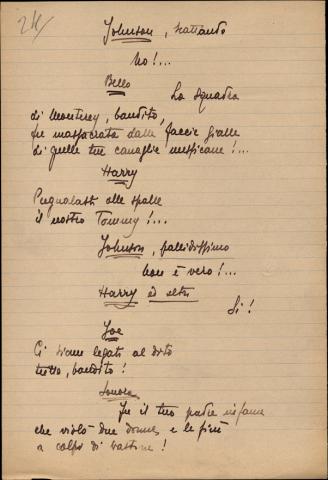 24/
Johnson, scattando
No!...
Bello
La squadra
di Monterey, bandito,
fu massacrata dalle faccie gialle
di quelle tue canaglie messicane!...
Harry
Pugnalasti alle spalle
il nostro Tommy!...
Johnson, pallidissimo
Non è vero!...
Harry ed altri
Si!
Joe
Ci siamo legati al dito
tutto, bandito!
Sonora
Fu il tuo padre infame
che violò due donne e le finì
a colpi di